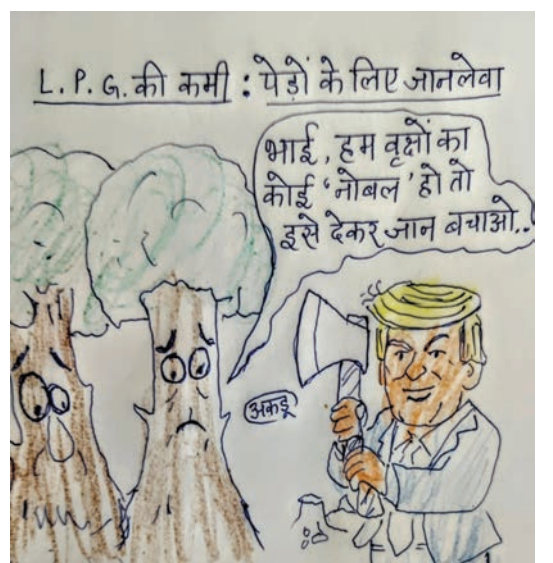 L.P.G. की कमी : पेड़ों के लिए जानलेवा
भाई, हम वृक्षों का
कोई 'नोबल' हो तो
इसे देकर जान बचाओ..
अकडू